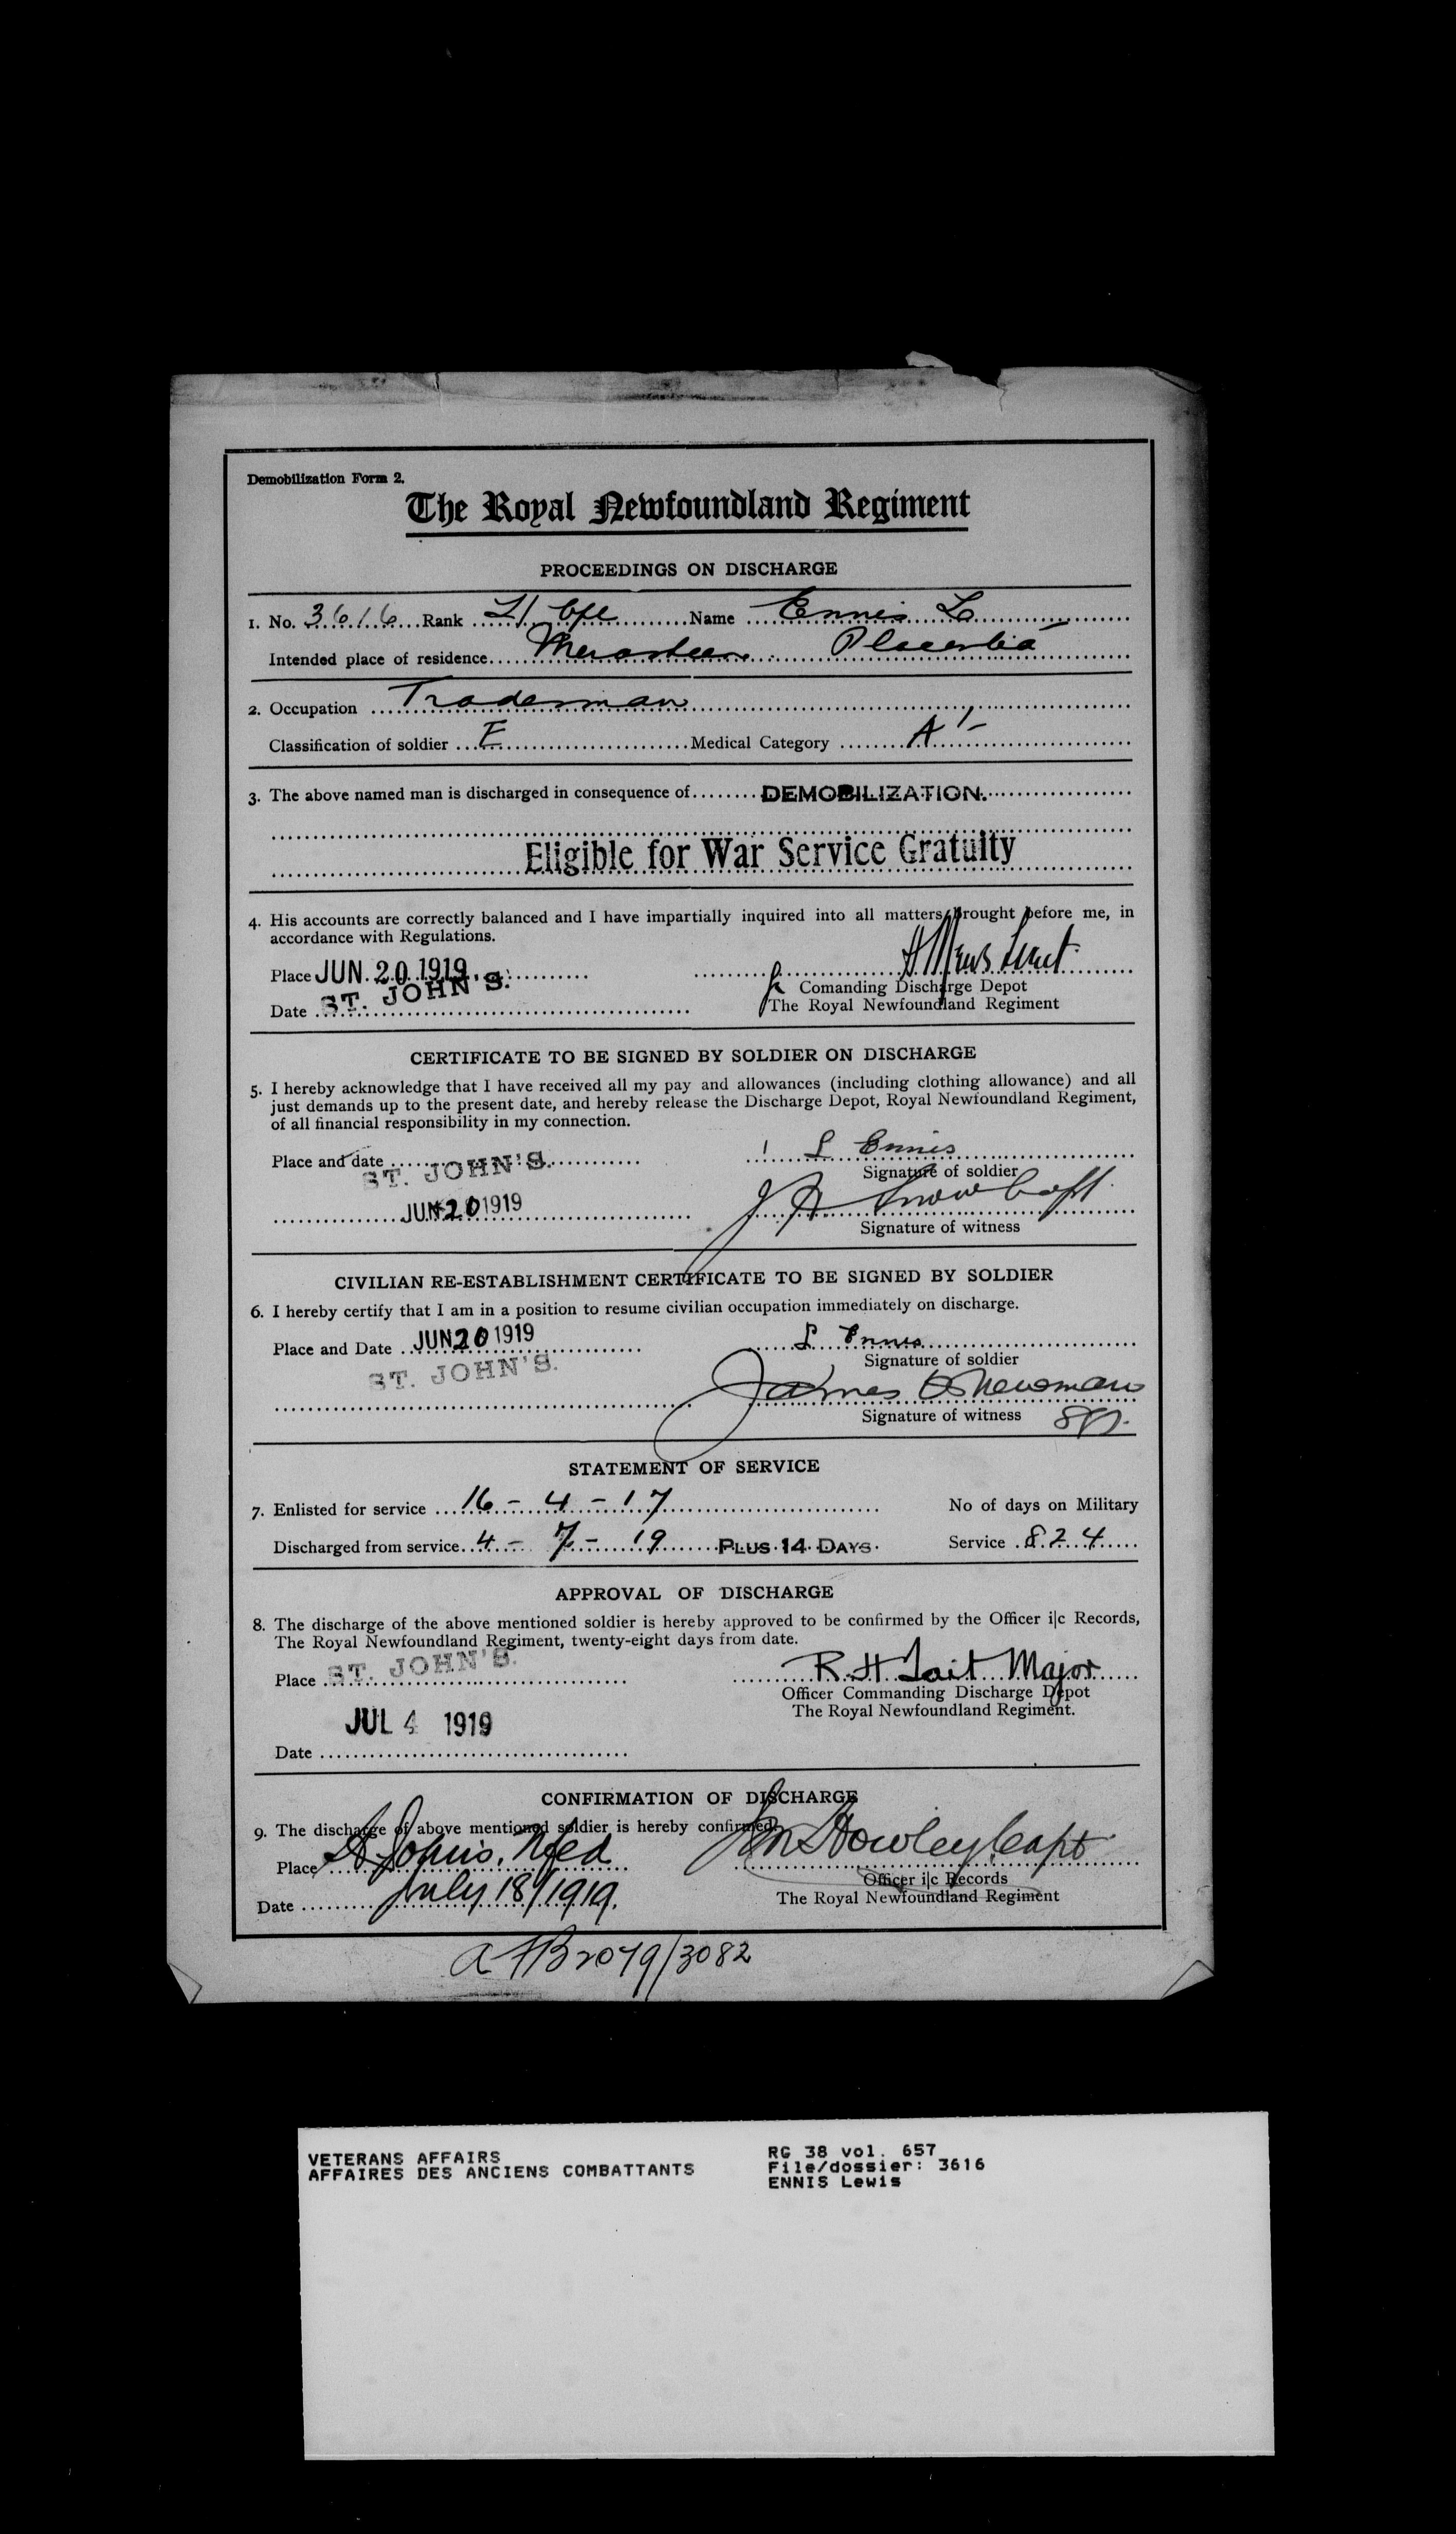 Demobilization Form 2.
The Royal Newfoundland Regiment
PROCEEDINGS ON DISCHARGE
1. No. 3616 Rank L/Cpl Name Ennis L
Intended place of residence Merasheen Placentia
2. Occupation Tradesman
Classification of soldier E Medical Category A1
3. The above named man is discharged in consequence of DEMOBILIZATION.
Eligible for War Service Gratuity
4. His accounts are correctly balanced and I have impartially inquired into all matters brought before me, in
accordance with Regulations.
Place JUN. 20 1919 H Mews Lieut
ST. JOHN'S. Comanding Discharge Depot
Date The Royal Newfoundland Regiment
CERTIFICATE TO BE SIGNED BY SOLDIER ON DISCHARGE
5. I hereby acknowledge that I have received all my pay and allowances (including clothing allowance) and all
just demands up to the present date, and hereby release the Discharge Depot, Royal Newfoundland Regiment,
of all financial responsibility in my connection.
Place and date ST. JOHN'S. L Ennis
Signature of soldier
JUN 20 1919 J A Snow Capt.
Signature of witness
CIVILIAN RE-ESTABLISHMENT CERTIFICATE TO BE SIGNED BY SOLDIER
6. I hereby certify that I am in a position to resume civilian occupation immediately on discharge.
Place and Date JUN 20 1919 L Ennis
ST. JOHN'S. Signature of soldier
James Newman
Signature of witness
STATEMENT OF SERVICE
7. Enlisted for service 16 - 4 - 17 No of days on Military
Discharged from service 4 - 7 - 19 PLUS 14 DAYS. Service 824
APPROVAL OF DISCHARGE
8. The discharge of the above mentioned soldier is hereby approved to be confirmed by the Officer i|c Records,
The Royal Newfoundland Regiment, twenty-eight days from date.
Place ST. JOHN'S. R H Tait Major
Officer Commanding Discharge Depot
The Royal Newfoundland Regiment.
JUL 4 1919
Date
CONFIRMATION OF DISCHARGE
9. The discharge of above mentioned soldier is hereby confirmed.
Place St John's, Nfld Howley, Capt
Officer i|c Records
Date July 18/1919. The Royal Newfoundland Regiment
AFB 2079/3082
VETERANS AFFAIRS RG 38 vol. 657
AFFAIRES DES ANCIENS COMBATTANTS File/dossier: 3616
ENNIS Lewis